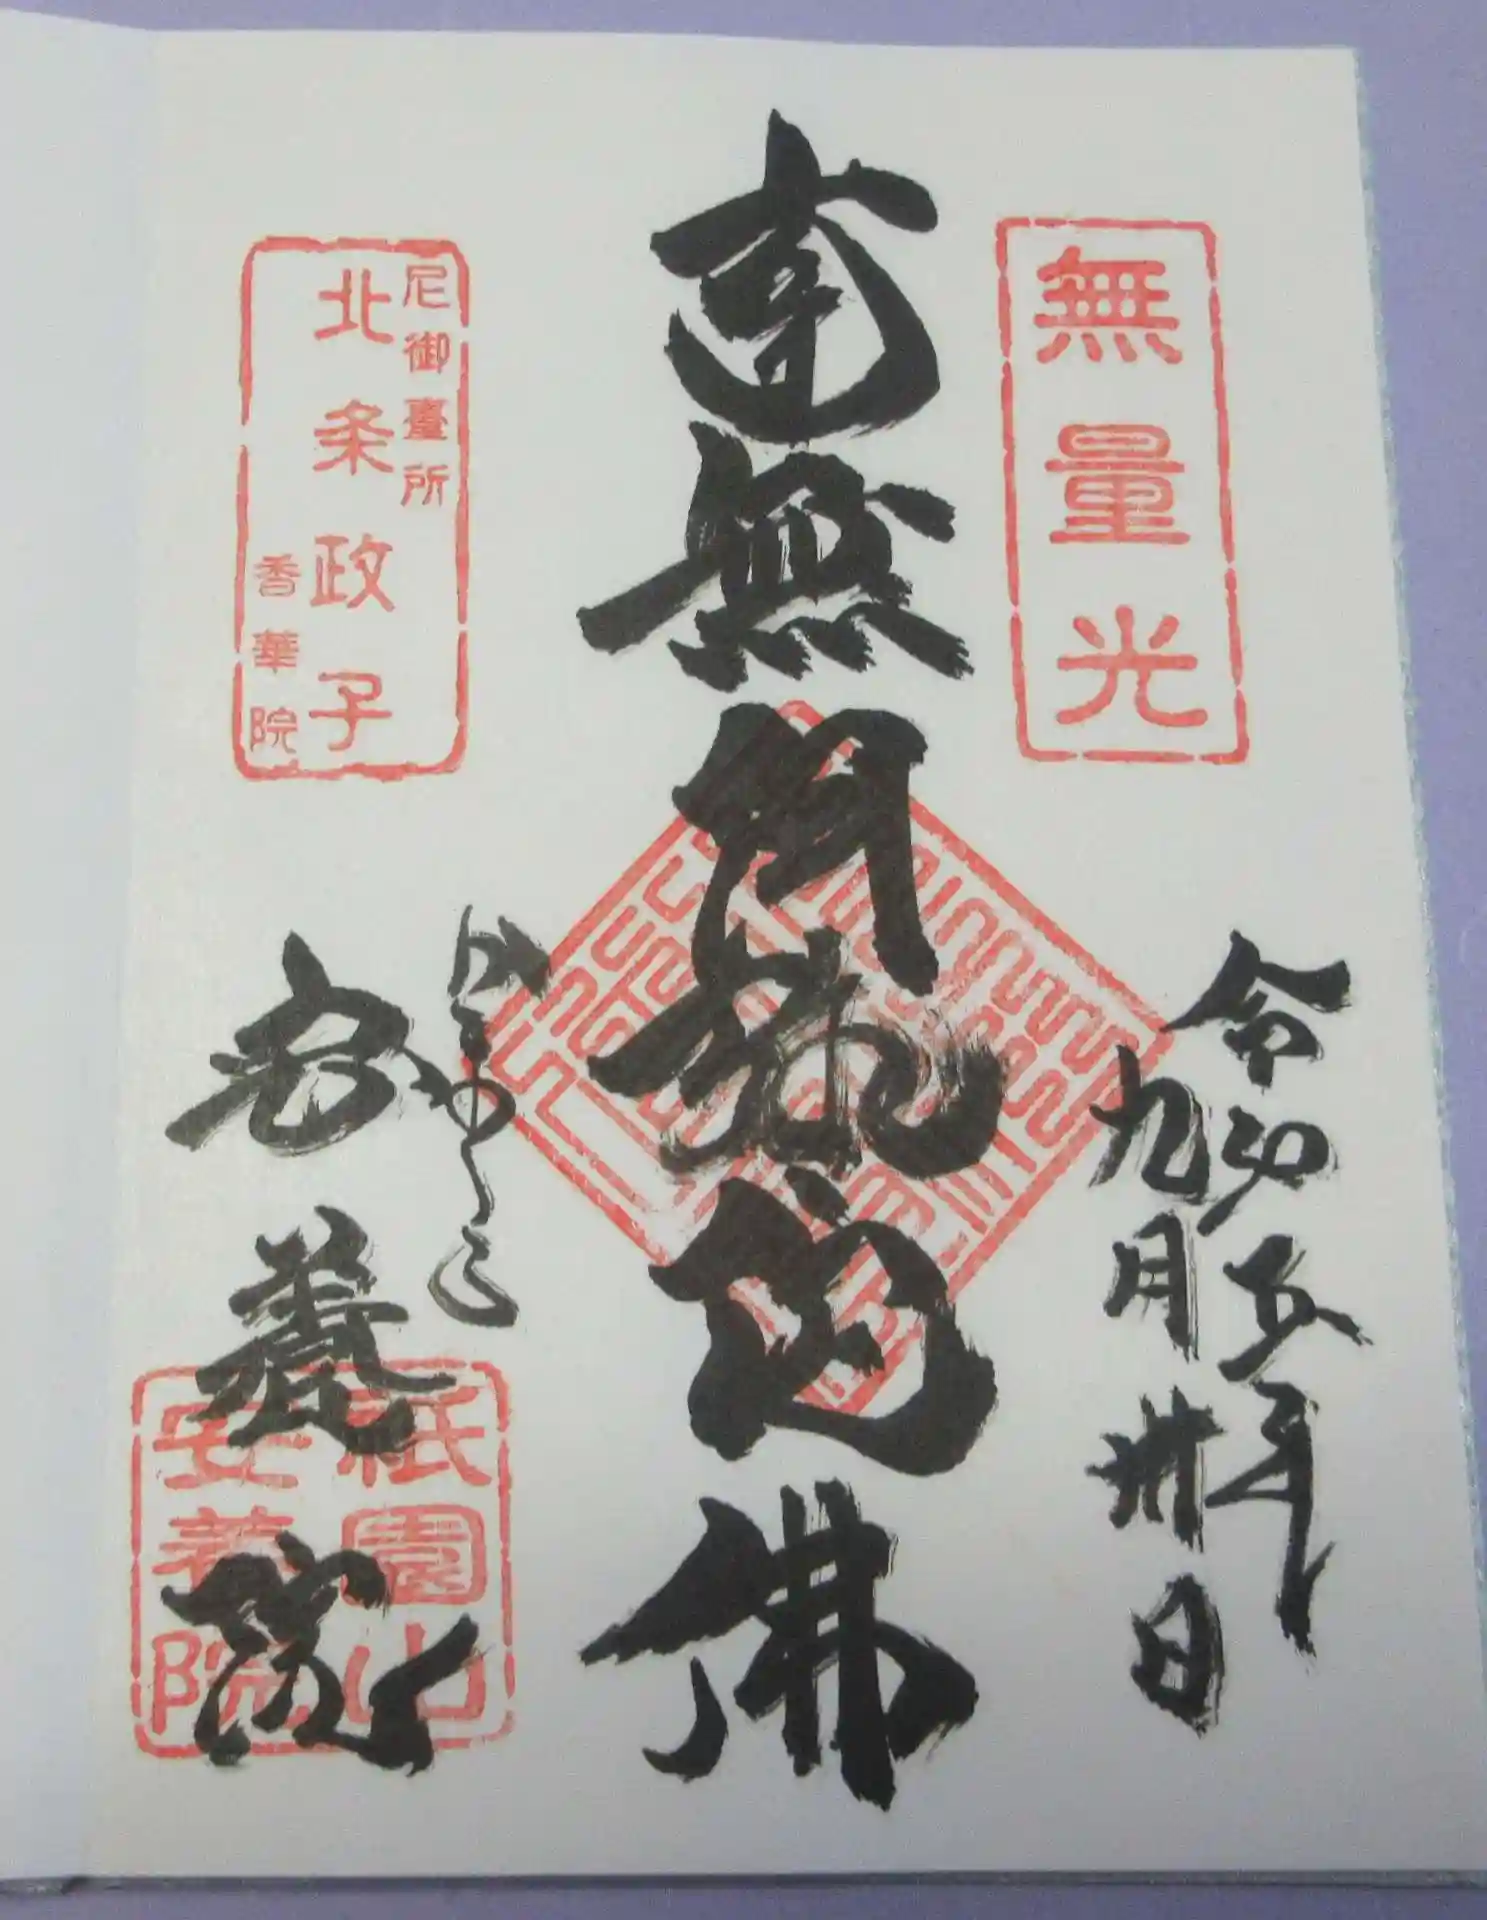 無量光
令和五年
九月卅日
南無阿弥陀佛
尼御臺所
北条政子
香華院
かまくら
安養院
祇園山
安養院